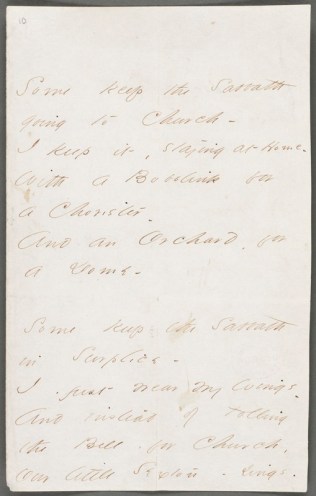 10
Some keep the Sabbath
going to Church -
I keep it, staying at Home -
With a Bobolink for
a Chorister -
And an Orchard, for
a Dome -
Some keep the Sabbath
in Surplice -
I just wear my Wings -
And instead of tolling
the Bell, for Church,
Our little Sexton - sings.